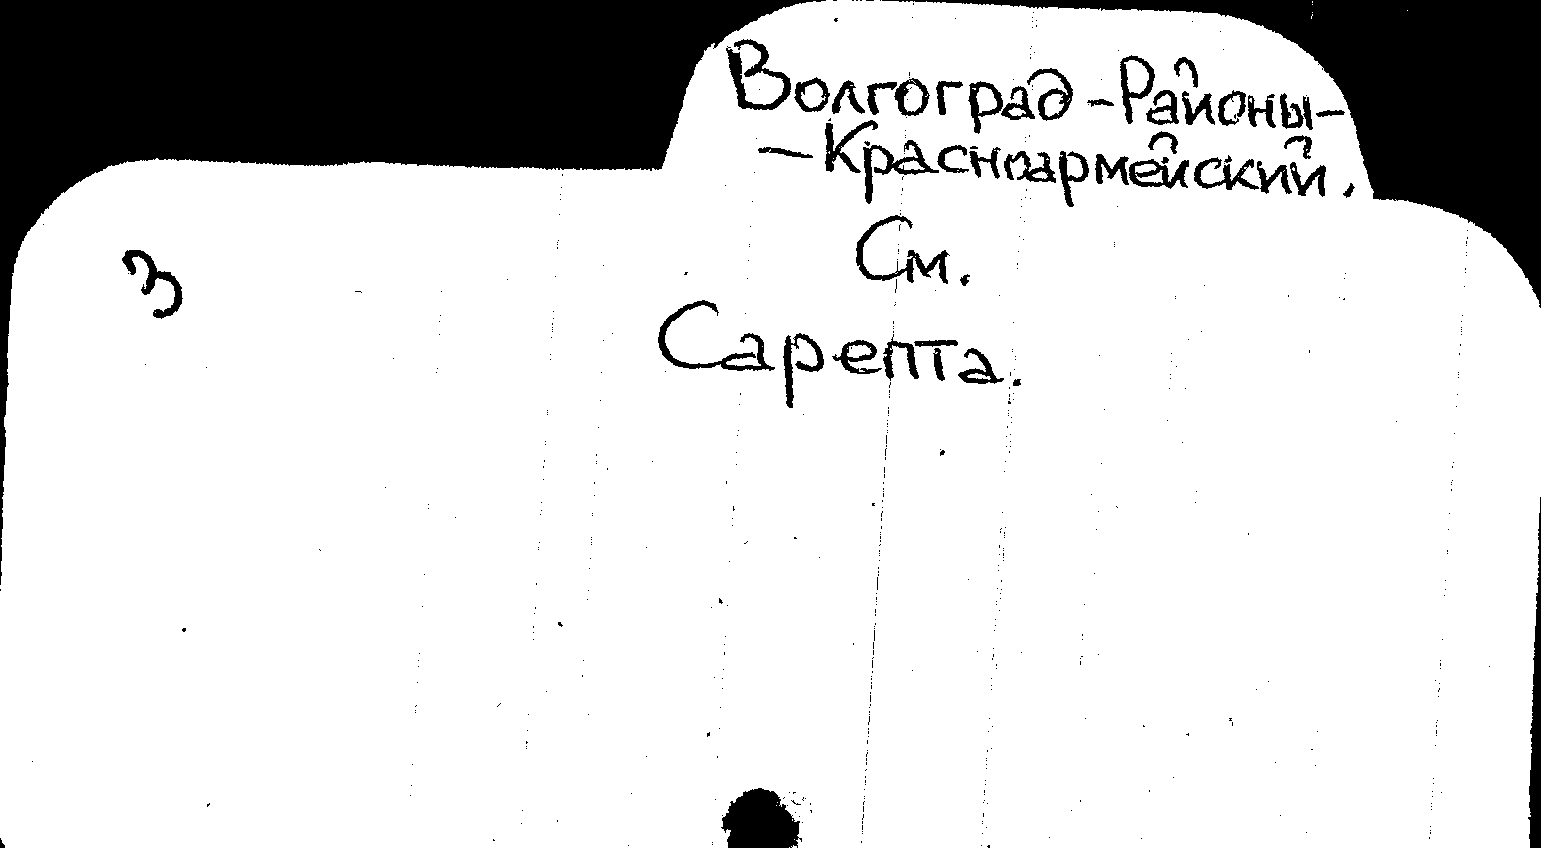 Волгоград-Районы-
-Красноармейский.
См.
З
Сарепта.